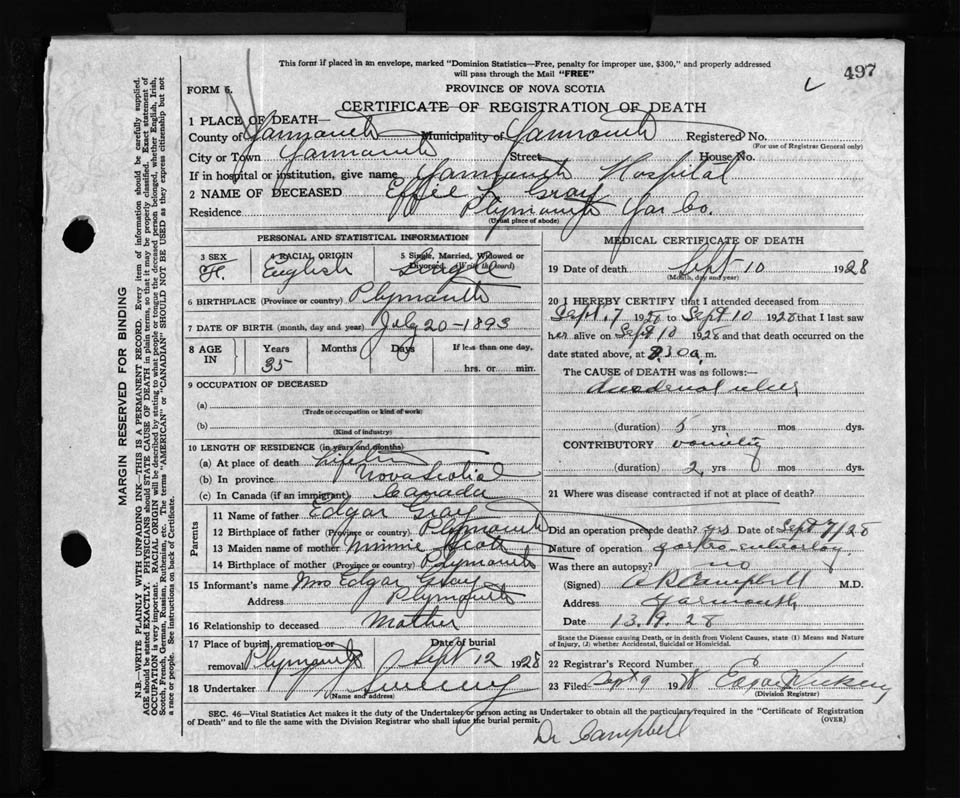 This form if placed in an envelope, marked "Dominion Statistics—Free, penalty for improper use, $300," and properly addressed
will pass through the Mail "FREE"
497
FORM 6.
PROVINCE OF NOVA SCOTIA
CERTIFICATE OF REGISTRATION OF DEATH
1 PLACE OF DEATH—
County of Yarmouth Municipality of Yarmouth Registered No.
(For use of Registrar General only)
City or Town Yarmouth Street House No.
If in hospital or institution, give name Yarmouth Hospital
2 NAME OF DECEASED Effie L. Gray
Residence Plymouth Yar Co.
(Usual place of abode)
PERSONAL AND STATISTICAL INFORMATION
3 SEX 4 RACIAL ORIGIN 5 Single, Married, Widowed or Divorced (Write the word)
F. English Single
6 BIRTHPLACE (Province or country) Plymouth
7 DATE OF BIRTH (month, day and year) July 20-1893
8 AGE IN Years Months Days If less than one day,
35 hrs. or min.
9 OCCUPATION OF DECEASED
(a)
(Trade or occupation or kind of work)
(b)
(Kind of industry)
10 LENGTH OF RESIDENCE (in years and months)
(a) At place of death
(b) In province Nova Scotia
(c) In Canada (if an immigrant) Canada
Parents
11 Name of father Edgar Gray
12 Birthplace of father (Province or country) Plymouth
13 Maiden name of mother Minnie Scott
14 Birthplace of mother (Province or country) Plymouth
15 Informant's name Mrs Edgar Gray
Address Plymouth
16 Relationship to deceased Mother
17 Place of burial, cremation or removal Plymouth Date of burial Sept 12 1928
18 Undertaker Sweeny
(Name and address)
MEDICAL CERTIFICATE OF DEATH
19 Date of death Sept 10 1928
(Month, day and year)
20 I HEREBY CERTIFY that I attended deceased from
Sept. 7 1928 to Sept 10 1928 that I last saw
her alive on Sept 10 1928 and that death occurred on the
date stated above, at 8.30 a. m.
The CAUSE of DEATH was as follows:—
duodenal ulcer
(duration) 5 yrs mos dys.
CONTRIBUTORY
(duration) 2 yrs mos dys.
21 Where was disease contracted if not at place of death?
Did an operation precede death? yes Date of Sept 7/28
Nature of operation
Was there an autopsy? no
(Signed) Campbell M.D.
Address Yarmouth
Date 13.9.28
State the Disease causing Death, or in death from Violent Causes, state (1) Means and Nature
of Injury, (2) whether Accidental, Suicidal or Homicidal.
22 Registrar's Record Number
23 Filed Sept 9 1928 Edgar
(Division Registrar)
SEC. 46—Vital Statistics Act makes it the duty of the Undertaker or person acting as Undertaker to obtain all the particulars required in the "Certificate of Registration
of Death" and to file the same with the Division Registrar who shall issue the burial permit. (OVER)
Dr Campbell
MARGIN RESERVED FOR BINDING
N.B—WRITE PLAINLY WITH UNFADING INK—THIS IS A PERMANENT RECORD. Every item of information should be carefully supplied.
AGE should be stated EXACTLY. PHYSICIANS should STATE CAUSE OF DEATH in plain terms, so that it may be properly classified. Exact statement of
OCCUPATION is very important. RACIAL ORIGIN will be described by stating to what people or tongue the deceased person belonged, whether English, Irish,
Scotch, French, German, Russian, Ruthenian, etc. The terms "AMERICAN" or "CANADIAN" SHOULD NOT BE USED as they express citizenship but not
a race or people. See instructions on back of Certificate.